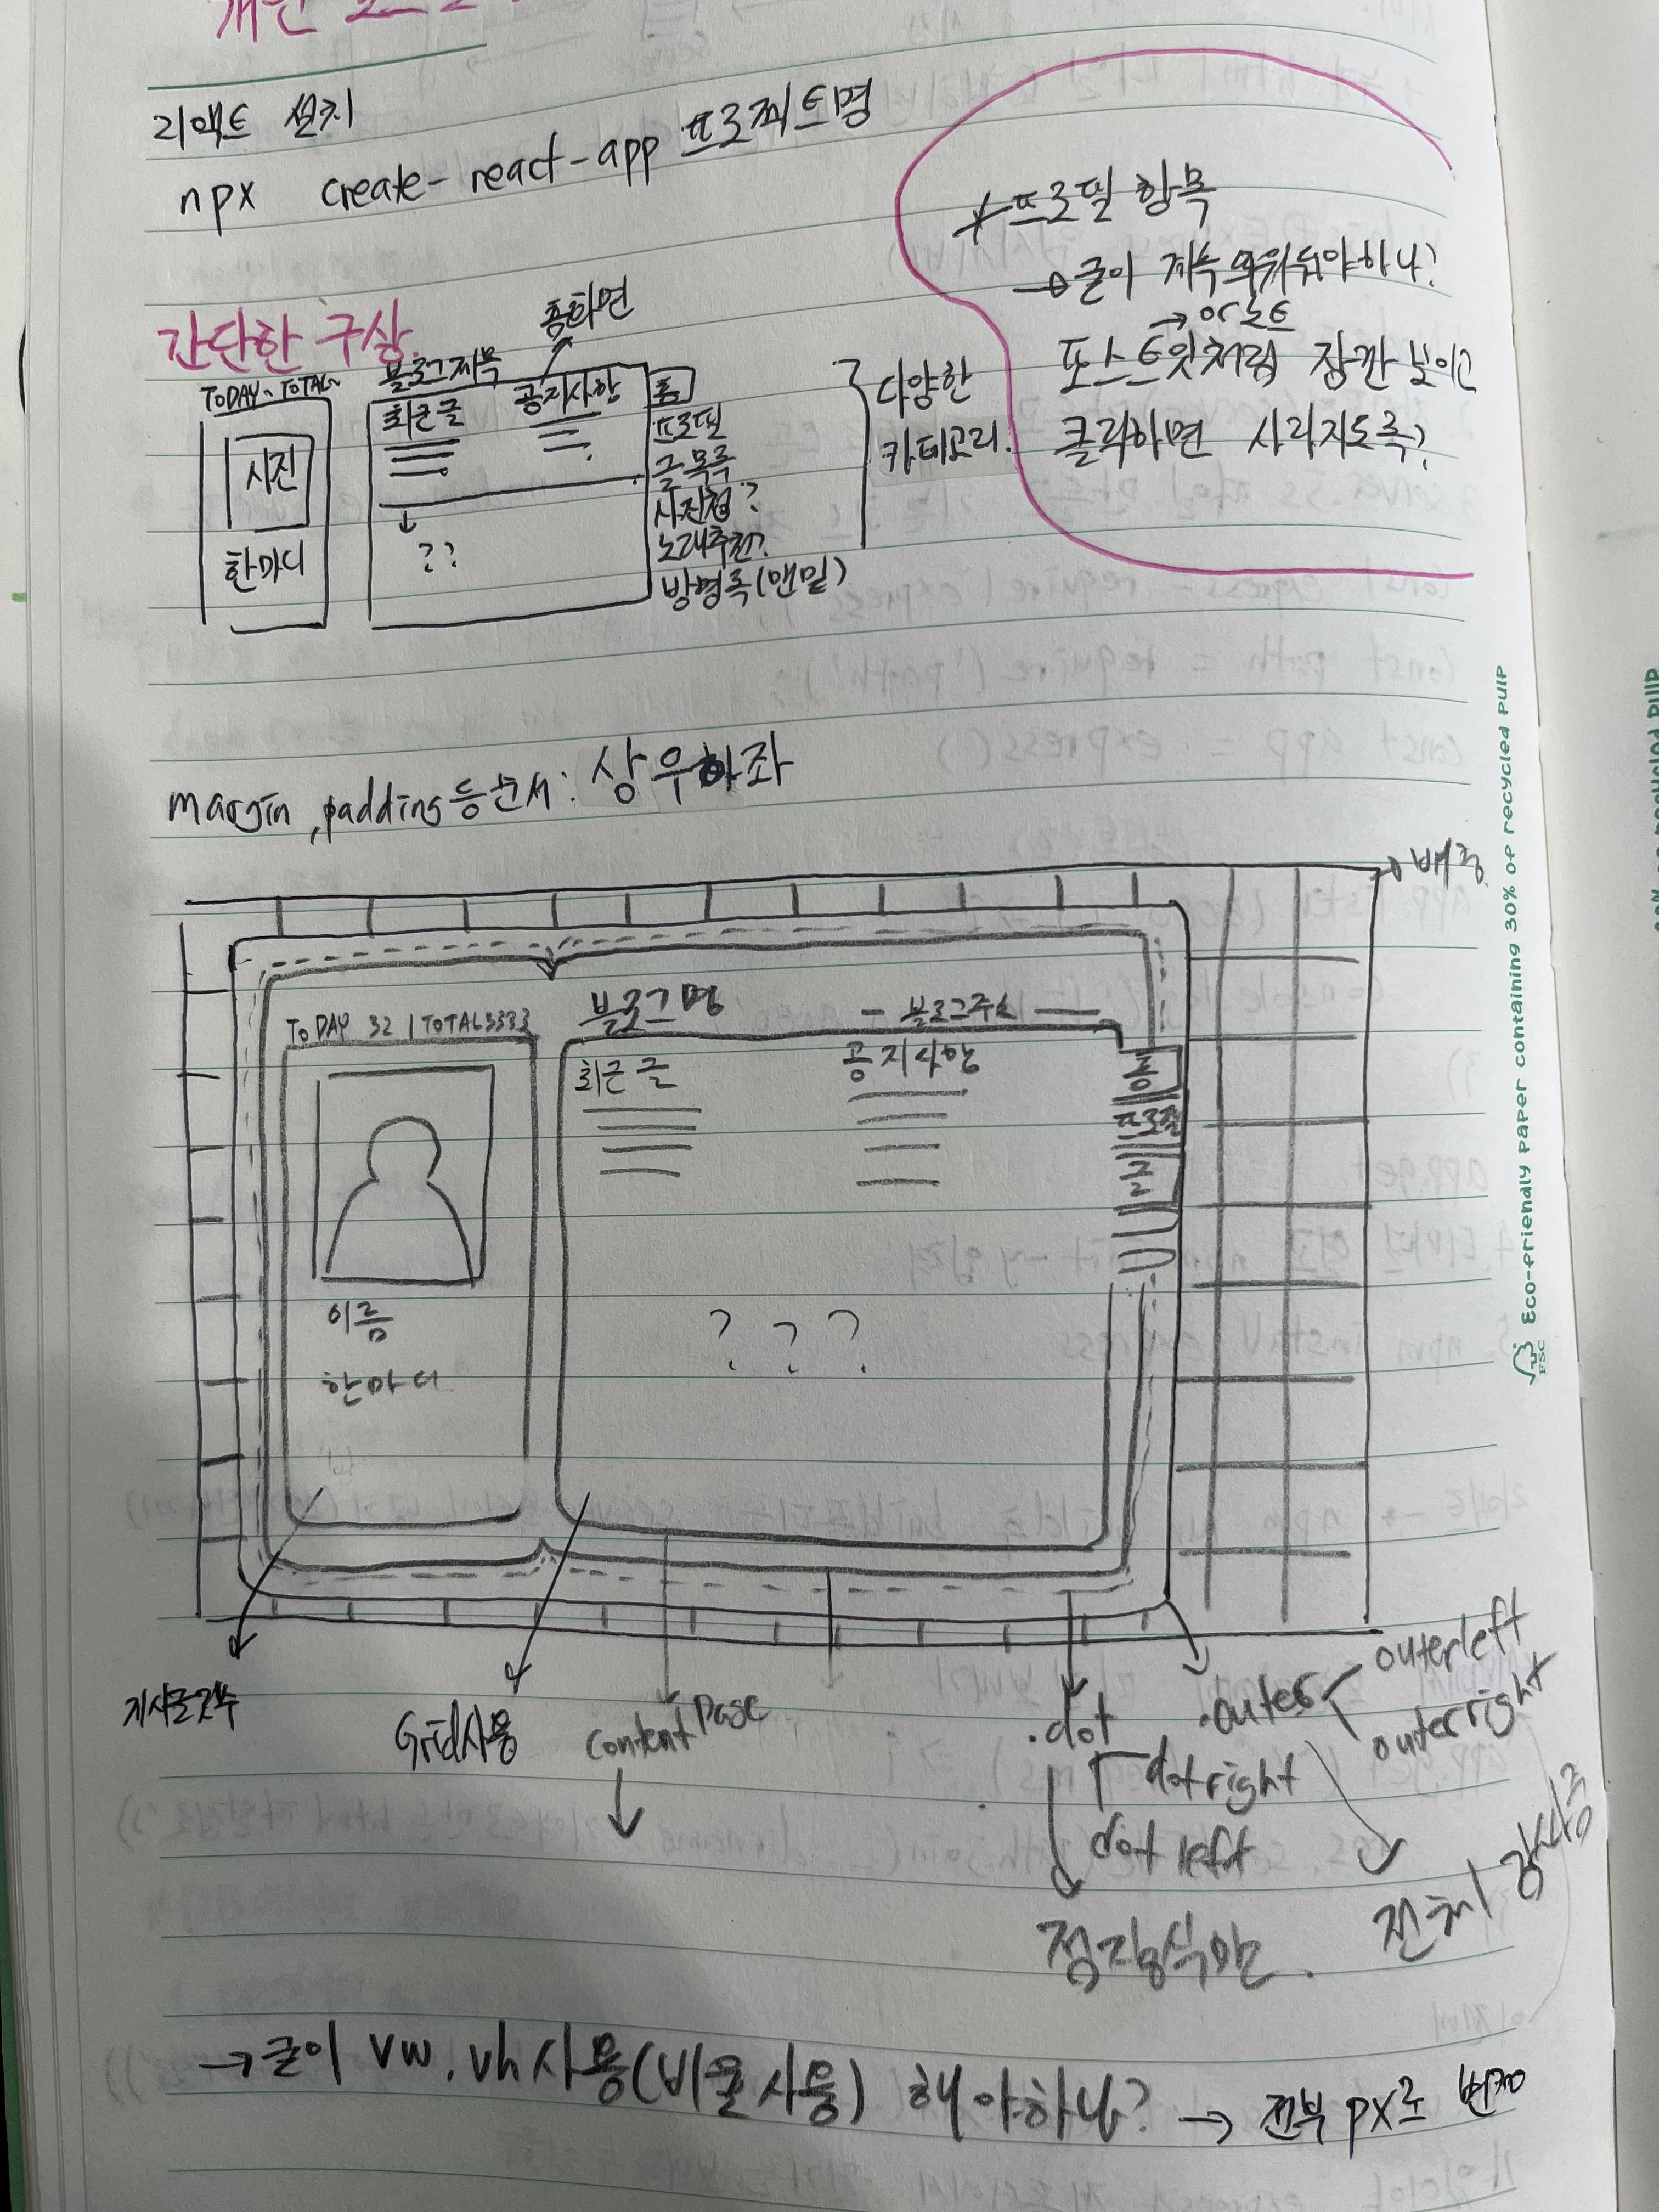 개인
리액트 설치
npx create-react-app 프로젝트명
프로필 항목
→ 굳이 계속 띄워둬야하나?
→ or 노트
포스트잇처럼 잠깐 보이고
클릭하면 사라지도록?
간단한 구상
홈화면
TODAY~TOTAL~
사진
한마디
블로그제목
최근글
공지사항
??
홈
프로필
글목록
사진첩?
노래추천?
방명록(맨밑)
다양한
카테고리
margin, padding등 순서: 상우하좌
배경
TODAY 32 | TOTAL3333
블로그명
블로그주소
최근글
공지사항
홈
프로필
글
이름
한마디
? ? ?
게시글갯수
Grid사용
Content Page
.dot
dotright
dot left
점선형식만.
.outer
outerleft
outerright
전체
→ 굳이 vw.vh사용(비율사용) 해야하나? → 전부 px로 변경
Eco-friendly paper containing 30% of recycled pulp
FSC